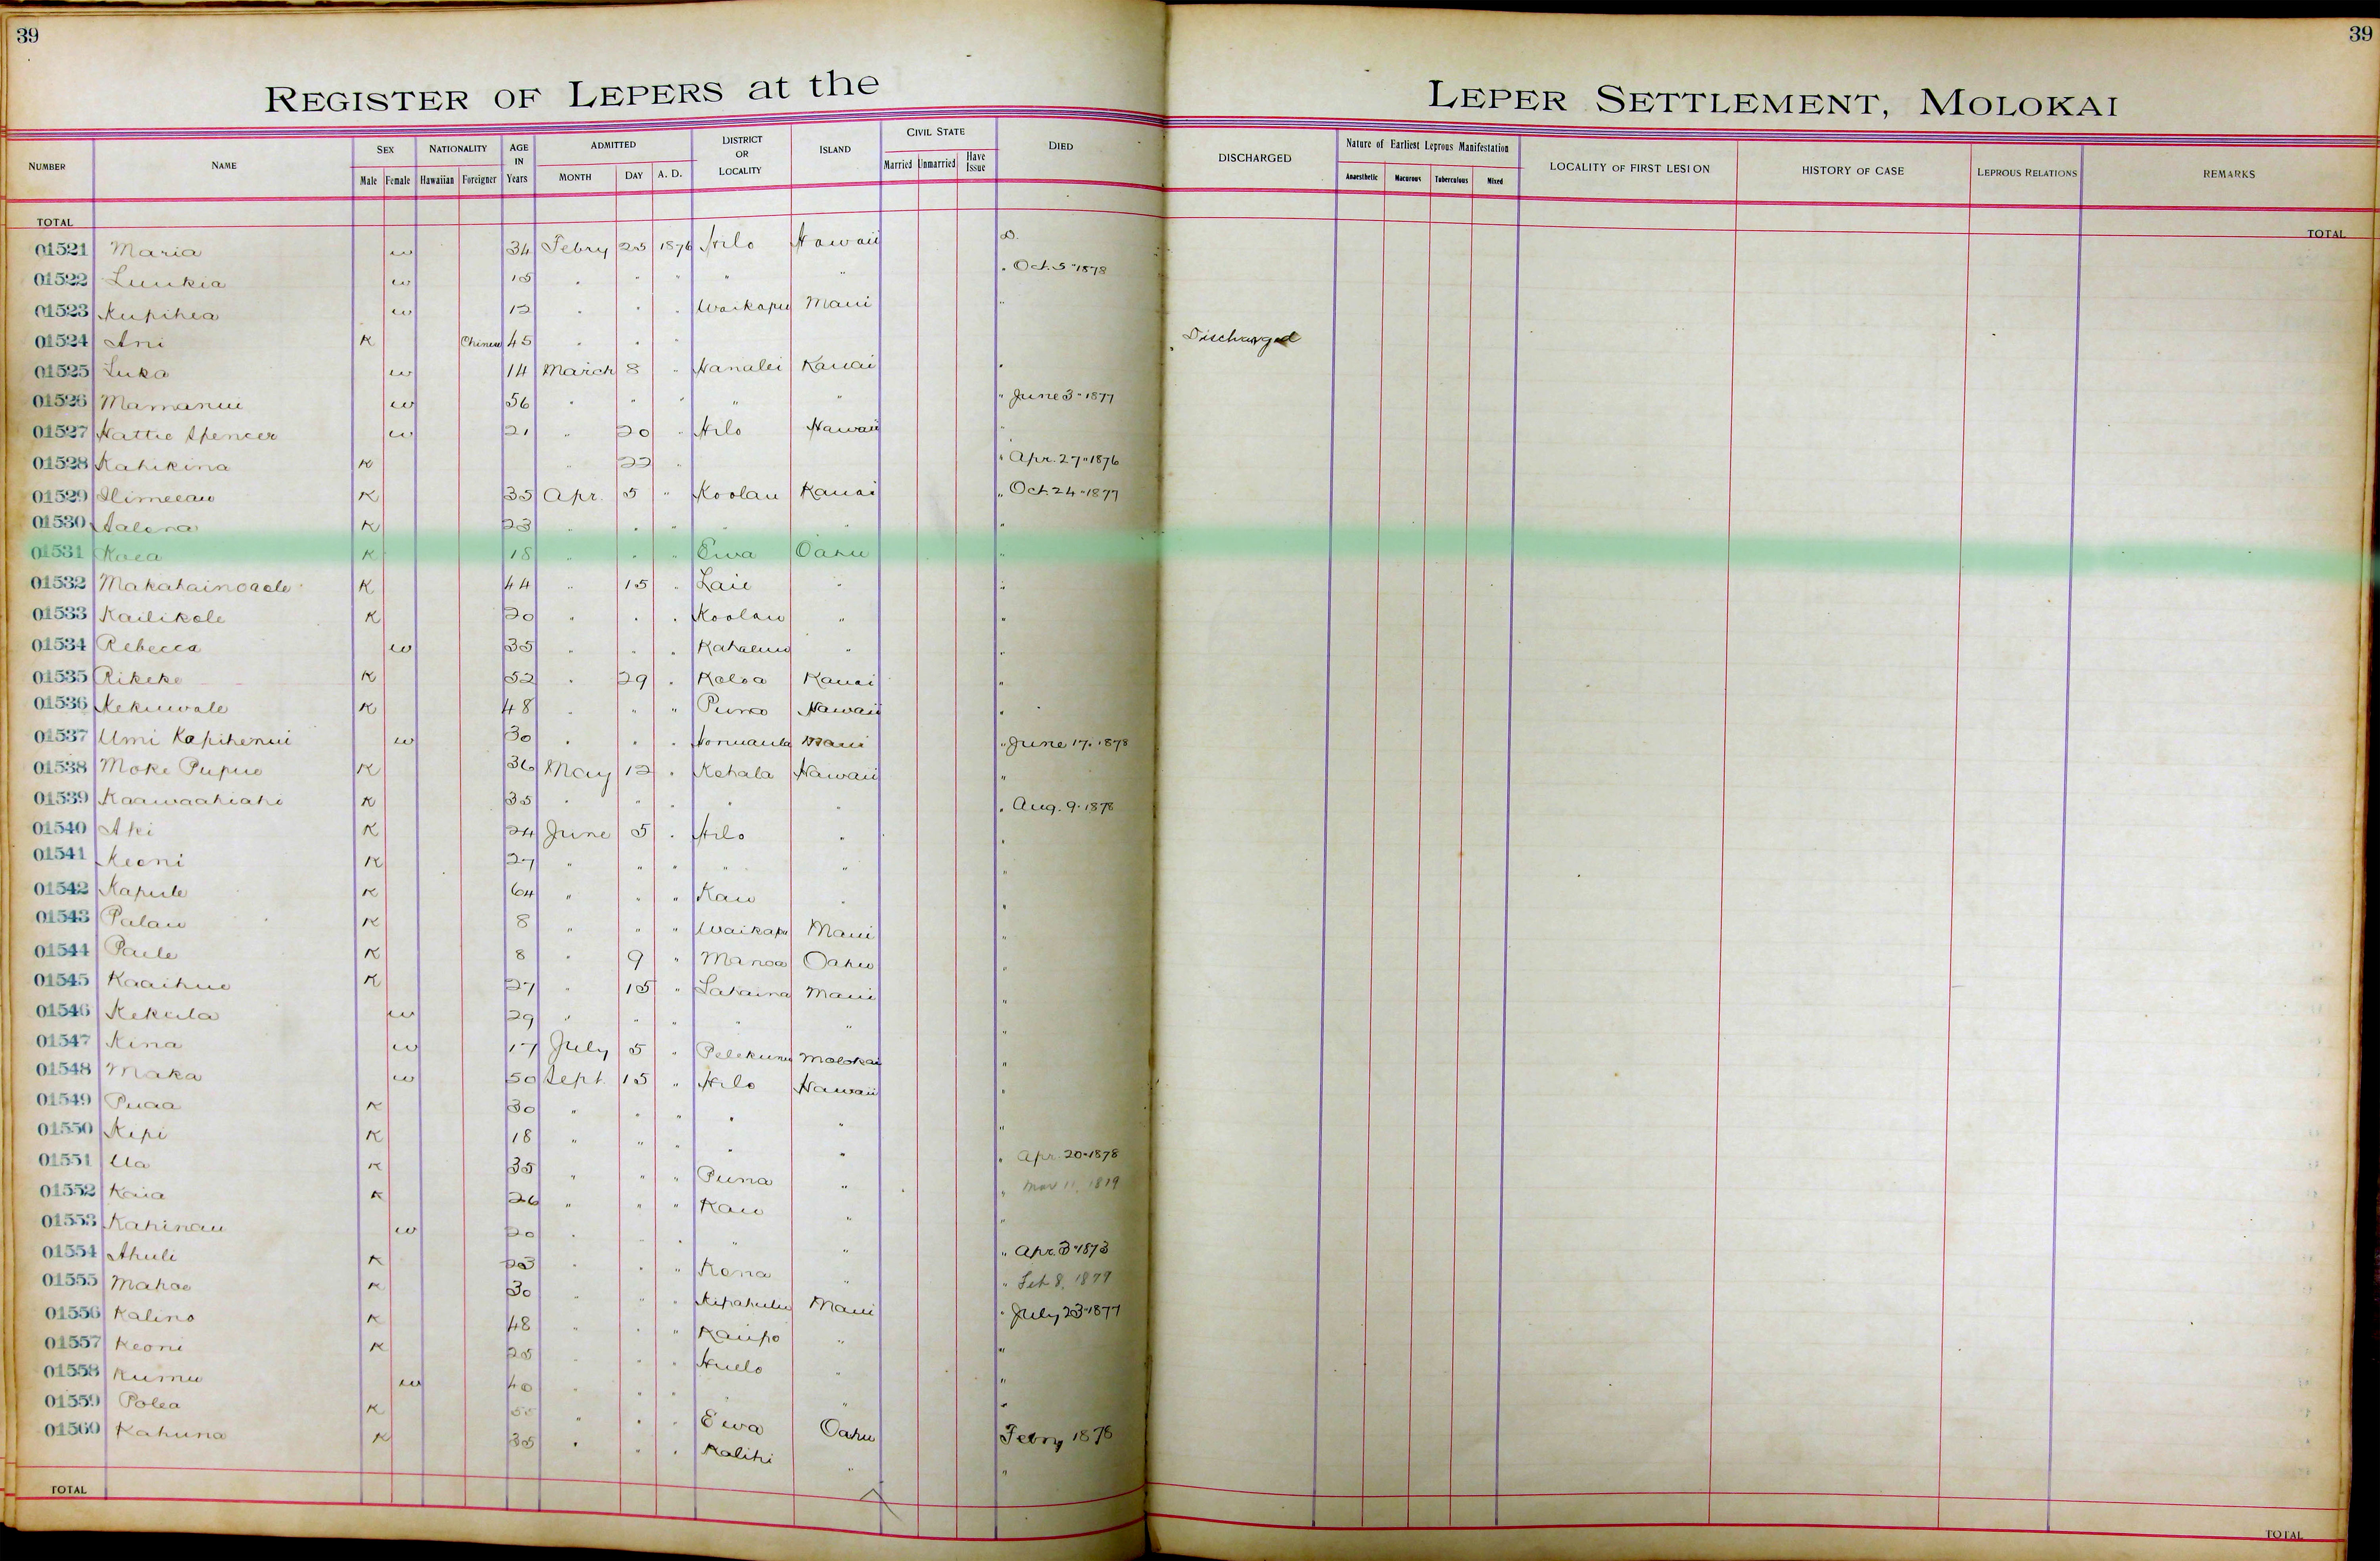 39 39
REGISTER OF LEPERS at the LEPER SETTLEMENT, MOLOKAI
NUMBER NAME SEX Male Female NATIONALITY Hawaiian Foreigner AGE IN Years ADMITTED MONTH DAY A. D. DISTRICT OR LOCALITY ISLAND CIVIL STATE Married Unmarried Have Issue DIED DISCHARGED Nature of Earliest Leprous Manifestation Anaesthetic Macurous Tuberculous Mixed LOCALITY OF FIRST LESION HISTORY OF CASE LEPROUS RELATIONS REMARKS
TOTAL TOTAL
01521 Maria w 34 Febry 25 1876 Hilo Hawaii D.
01522 Luukia w 15 " " " " " " Oct. 5 " 1878
01523 Kupihea w 12 " " " Waikapu Maui "
01524 Ani K Chinese 45 " " " Discharged
01525 Luka w 14 March 8 " Hanalei Kauai "
01526 Mamanui w 56 " " " " " " June 3 " 1877
01527 Hattie Spencer w 21 " 20 " Hilo Hawaii "
01528 Kahikina K " 22 " " Apr. 27 " 1876
01529 K 35 Apr. 5 " Koolau Kauai " Oct. 24 " 1877
01530 K 23 " " " " " "
01531 Koea K 18 " " " Ewa Oahu "
01532 K 44 " 15 " Laie " "
01533 Kailikole K 20 " " " Koolau " "
01534 Rebecca w 35 " " " " "
01535 Rikeke K 52 " 29 " Koloa Kauai "
01536 Kekuwale K 48 " " " Puna Hawaii "
01537 Umi Kapihenui w 30 " " " Honuaula Maui " June 17 " 1878
01538 Moke Pupuo K 36 May 12 " Kohala Hawaii "
01539 Kaawaahiahi K 35 " " " " " " Aug. 9 " 1878
01540 Ahi K 24 June 5 " Hilo " "
01541 Keoni K 27 " " " " " "
01542 Kapule K 64 " " " Kau " "
01543 Palau K 8 " " " Waikapu Maui "
01544 Paele K 8 " 9 " Manoa Oahu "
01545 Kaaihue K 27 " 15 " Lahaina Maui "
01546 Kekula w 29 " " " " " "
01547 Kina w 17 July 5 " Pelekunu Molokai "
01548 Maka w 50 Sept. 15 " Hilo Hawaii "
01549 Puaa K 30 " " " " " "
01550 Kepi K 18 " " " " " "
01551 Ua K 35 " " " Puna " " Apr. 20 " 1878
01552 Kaia K 26 " " " Kau " " Mar 11, 1879
01553 Kahinau w 20 " " " " " "
01554 Ahuli K 23 " " " Kona " " Apr. 3 " 1873
01555 Mahoe K 30 " " " Kipahulu Maui " Feb 8, 1879
01556 Kalino K 48 " " " Kaupo " " July 23 " 1877
01557 Keoni K 25 " " " Huelo " "
01558 Kumu w 40 " " " " "
01559 Polea K 55 " " " Ewa Oahu "
01560 Kahuna K 35 " " " Kalihi " Febry 1878
TOTAL TOTAL